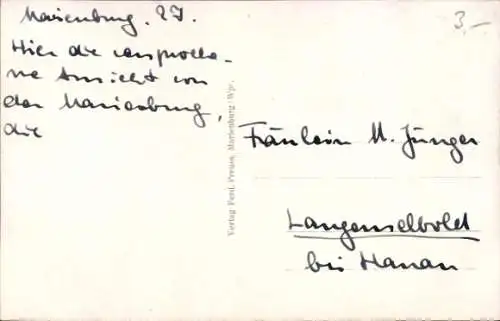 Marienburg. 27.
Hier die versprocke-
ne Ansicht von
der Marienburg,
die
3,-
Verlag Ferd. Preuss, Marienburg/Wpr.
Fräulein M. Jünger
Langenselbold
bei Hanau